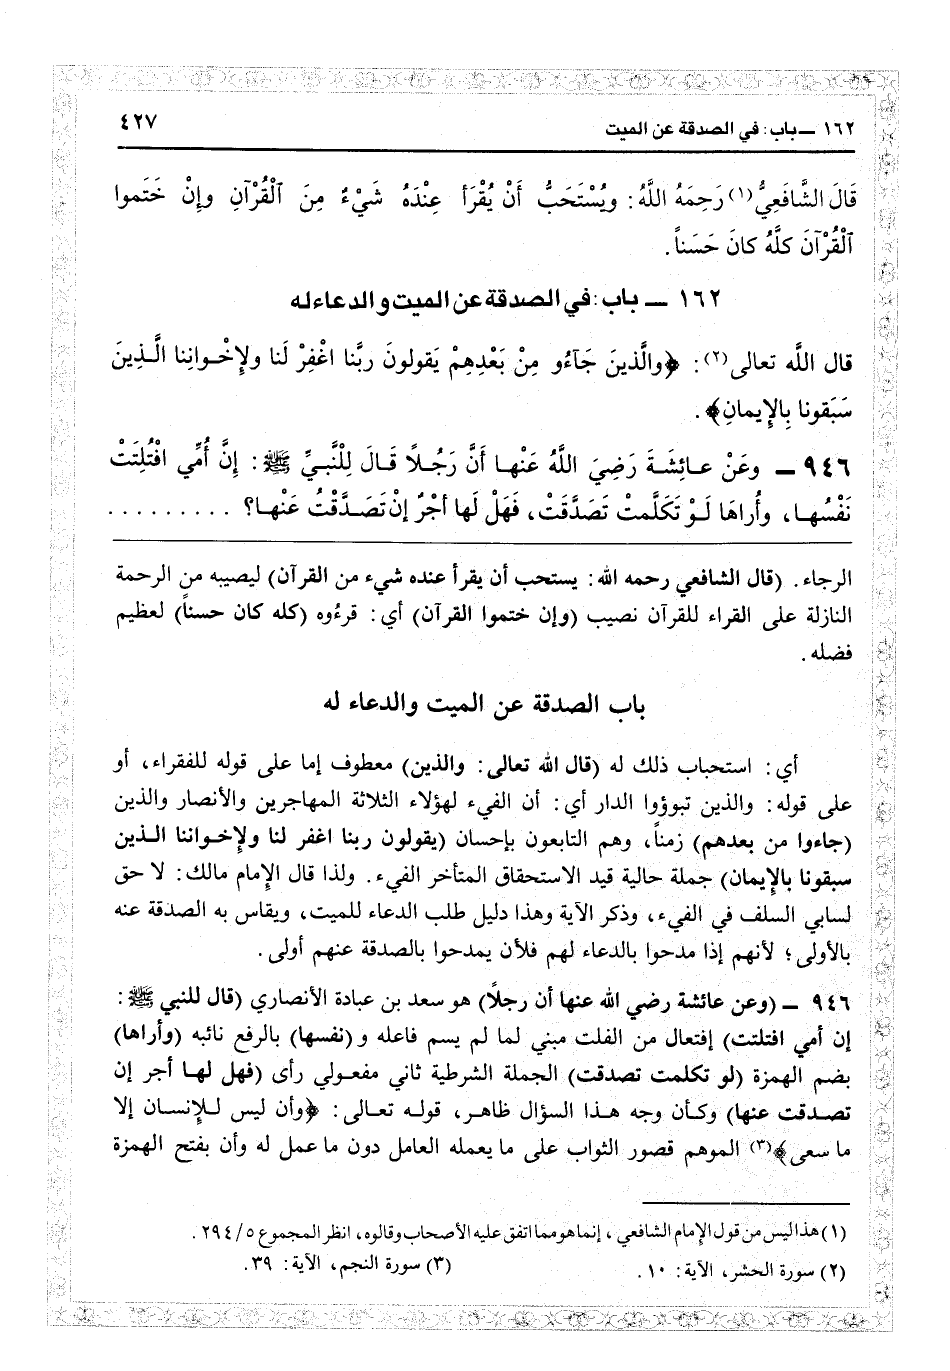 ١٦٢ ــ باب: في الصدقة عن الميت
٤٢٧
قَالَ الشَّافِعِيُّ(١) رَحِمَهُ اللَّهُ: ويُسْتَحَبُّ أَنْ يُقْرَأ عِنْدَهُ شَيْءٌ مِنَ ٱلْقُرْآنِ وإنْ خَتَموا
ٱلْقُرْآنَ كلَّهُ كانَ حَسَناً.
١٦٢ ــ باب: في الصدقة عن الميت والدعاء له
قال اللَّه تعالى(٢): ﴿والَّذينَ جَآءُو مِنْ بَعْدِهِمْ يَقولونَ ربَّنا اغْفِرْ لَنا ولإخْوانِنا الَّـذِينَ
سَبَقونا بِالإِيمانِ﴾.
٩٤٦ ــ وعَنْ عائِشَةَ رَضِيَ اللَّهُ عَنْها أَنَّ رَجُلاً قَالَ لِلْنَّبيِّ ﷺ: إنَّ أُمِّي افْتُلِتَتْ
نَفْسُها، وأُراهَا لَوْ تَكَلَّمتْ تَصَدَّقَتْ، فَهَلْ لَها أجْرٌ إنْ تَصَدَّقْتُ عَنْها؟ .........
الرجاء. (قال الشافعي رحمه الله: يستحب أن يقرأ عنده شيء من القرآن) ليصيبه من الرحمة
النازلة على القراء للقرآن نصيب (وإن ختموا القرآن) أي: قرءُوه (كله كان حسناً) لعظيم
فضله.
باب الصدقة عن الميت والدعاء له
أي: استحباب ذلك له (قال الله تعالى: والذين) معطوف إما على قوله للفقراء، أو
على قوله: والذين تبوؤوا الدار أي: أن الفيء لهؤلاء الثلاثة المهاجرين والأنصار والذين
(جاءوا من بعدهم) زمناً، وهم التابعون بإحسان (يقولون ربنا اغفر لنا ولإخواننا الذين
سبقونا بالإِيمان) جملة حالية قيد الاستحقاق المتأخر الفيء. ولذا قال الإِمام مالك: لا حق
لسابي السلف في الفيء، وذكر الآية وهذا دليل طلب الدعاء للميت، ويقاس به الصدقة عنه
بالأولى؛ لأنهم إذا مدحوا بالدعاء لهم فلأن يمدحوا بالصدقة عنهم أولى.
٩٤٦ ــ (وعن عائشة رضي الله عنها أن رجلاً) هو سعد بن عبادة الأنصاري (قال للنبي ﷺ:
إن أمي افتلتت) إفتعال من الفلت مبني لما لم يسم فاعله و(نفسها) بالرفع نائبه (وأراها)
بضم الهمزة (لو تكلمت تصدقت) الجملة الشرطية ثاني مفعولي رأى (فهل لها أجر إن
تصدقت عنها) وكأن وجه هذا السؤال ظاهر، قوله تعالى: ﴿وأن ليس للإنسان إلا
ما سعى﴾(٣) الموهم قصور الثواب على ما يعمله العامل دون ما عمل له وأن بفتح الهمزة
(١) هذا ليس من قول الإمام الشافعي، إنما هو مما اتفق عليه الأصحاب وقالوه، انظر المجموع ٥/٢٩٤.
(٢) سورة الحشر، الآية: ١٠.
(٣) سورة النجم، الآية: ٣٩.